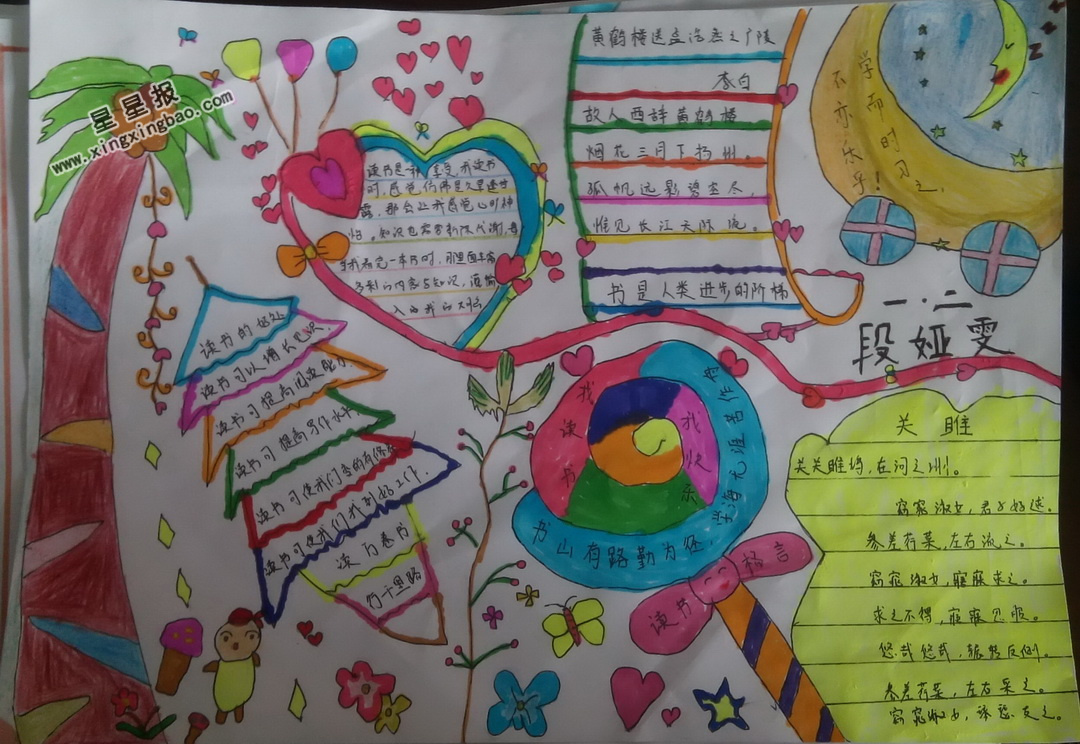 星星报
www.xingxingbao.com
黄鹤楼送孟浩然之广陵
李白
故人西辞黄鹤楼
烟花三月下扬州。
孤帆远影碧空尽,
惟见长江天际流。
书是人类进步的阶梯
学而时习之,
不亦乐乎!
一.二
段娅雯
读书是种享受,我读书
时,感觉仿佛是久旱逢甘
露,那会让我感觉心旷神
怡。知识也需要新陈代谢,每
当我看完一本书时,那里面丰富
多彩的内容与知识,
入的我的
读书的好处
读书可以增长见识.
读书可提高阅读能力
读书可提高写作水平,
读书可使我们变的有修养
读书可使我们找到好工作.
读万卷书
行千里路
我读书
我快乐
书山有路勤为径,
学海无涯苦作舟
读书格言
关雎
关关雎鸠,在河之洲。
窈窕淑女,君子好逑。
参差荇菜,左右流之。
窈窕淑女,寤寐求之。
求之不得,寤寐思服。
悠哉悠哉,辗转反侧。
参差荇菜,左右采之。
窈窕淑女,琴瑟友之。